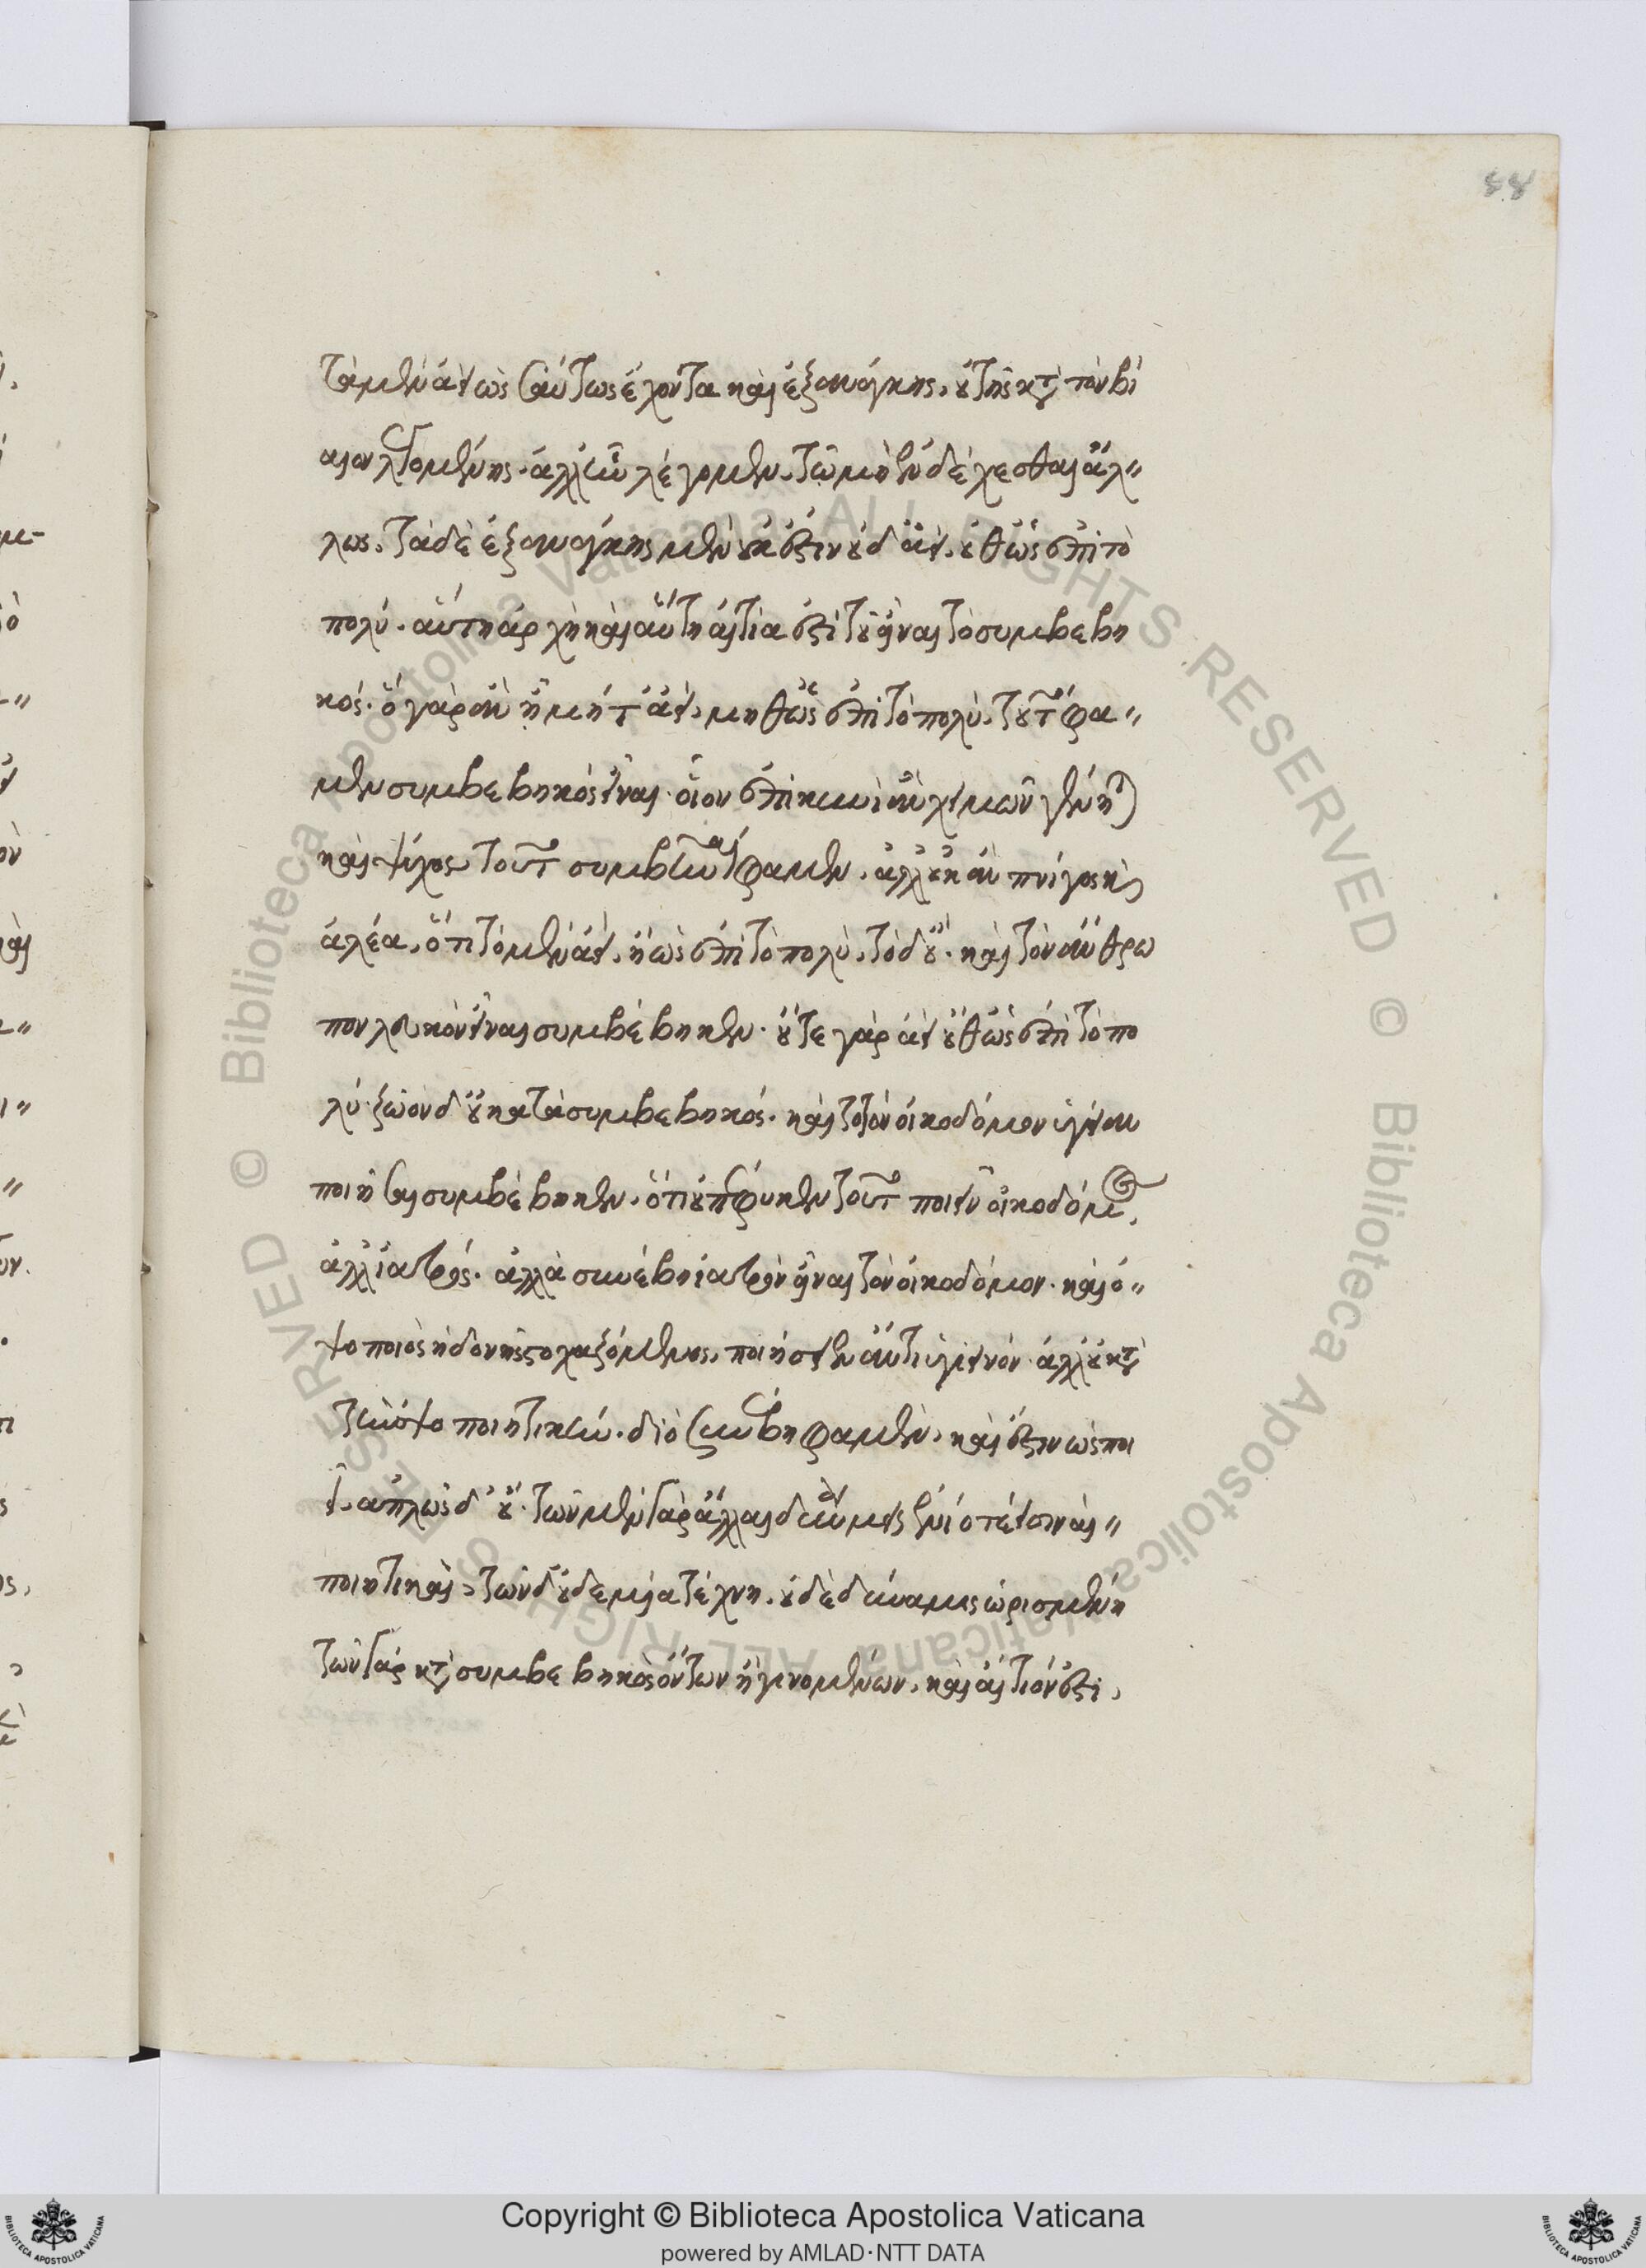 88
τὰ μὲν ἀεὶ ὡσαύτως ἔχοντα καὶ ἐξ ἀνάγκης, οὐ τῆς κατὰ τὸν βί
αιον λεγομένης. ἀλλ' ἣν λέγομεν. τῷ μὴ ἐνδέχεσθαι ἄλ"
λως. τὰ δὲ ἐξ ἀνάγκης μὲν οὐκ ἔστιν οὐδ' ἀεὶ. οὐθ' ὡς ἐπὶ τὸ
πολύ. αὕτη ἀρχὴ καὶ αὕτη αἰτία ἐστὶ τοῦ εἶναι τὸ συμβεβη
κός. ὃ γὰρ ἂν ᾖ μήτ' ἀεὶ. μήθ' ὡς ἐπὶ τὸ πολὺ. τοῦτό φα"
μεν συμβεβηκὸς εἶναι. οἷον ἐπὶ κυνὶ ἂν χειμὼν γένηται
καὶ ψύχος τοῦτο συμβῆναι φαμεν. ἀλλ' οὐκ ἂν πνίγος καὶ
ἀλέα. ὅτι τὸ μὲν ἀεὶ. ἢ ὡς ἐπὶ τὸ πολὺ. τὸ δ' οὔ. καὶ τὸν ἄνθρω
πον λευκὸν εἶναι συμβέβηκεν. οὔτε γὰρ ἀεὶ οὔθ' ὡς ἐπὶ τὸ πο
λύ. ζῷον δ' οὐ κατὰ συμβεβηκός. καὶ τὸ τὸν οἰκοδόμον ὑγίειαν
ποιῆσαι συμβέβηκεν. ὅτι οὐ πέφυκεν τοῦτο ποιεῖν οἰκοδόμος,
ἀλλ' ἰατρός. ἀλλὰ συνέβη ἰατρὸν εἶναι τὸν οἰκοδόμον. καὶ ὀ"
ψοποιὸς ἡδονῆς στοχαζόμενος, ποιήσειεν ἄν τι ὑγιεινόν. ἀλλ' οὐ κατὰ
τὴν ὀψοποιητικήν. διὸ συνέβη φαμὲν, καὶ ἔστιν ὡς ποι
εῖ. ἁπλῶς δ' οὔ. τῶν μὲν γὰρ ἄλλαι δυνάμεις ἐνίοτέ εἰσιν αἱ"
ποιητικαὶ, τῶν δ' οὐδεμία τέχνη. οὐδὲ δύναμις ὡρισμένη
τῶν γὰρ κατὰ συμβεβηκὸς ὄντων ἢ γινομένων. καὶ αἴτιόν ἐστι,
Copyright © Biblioteca Apostolica Vaticana
powered by AMLAD·NTT DATA